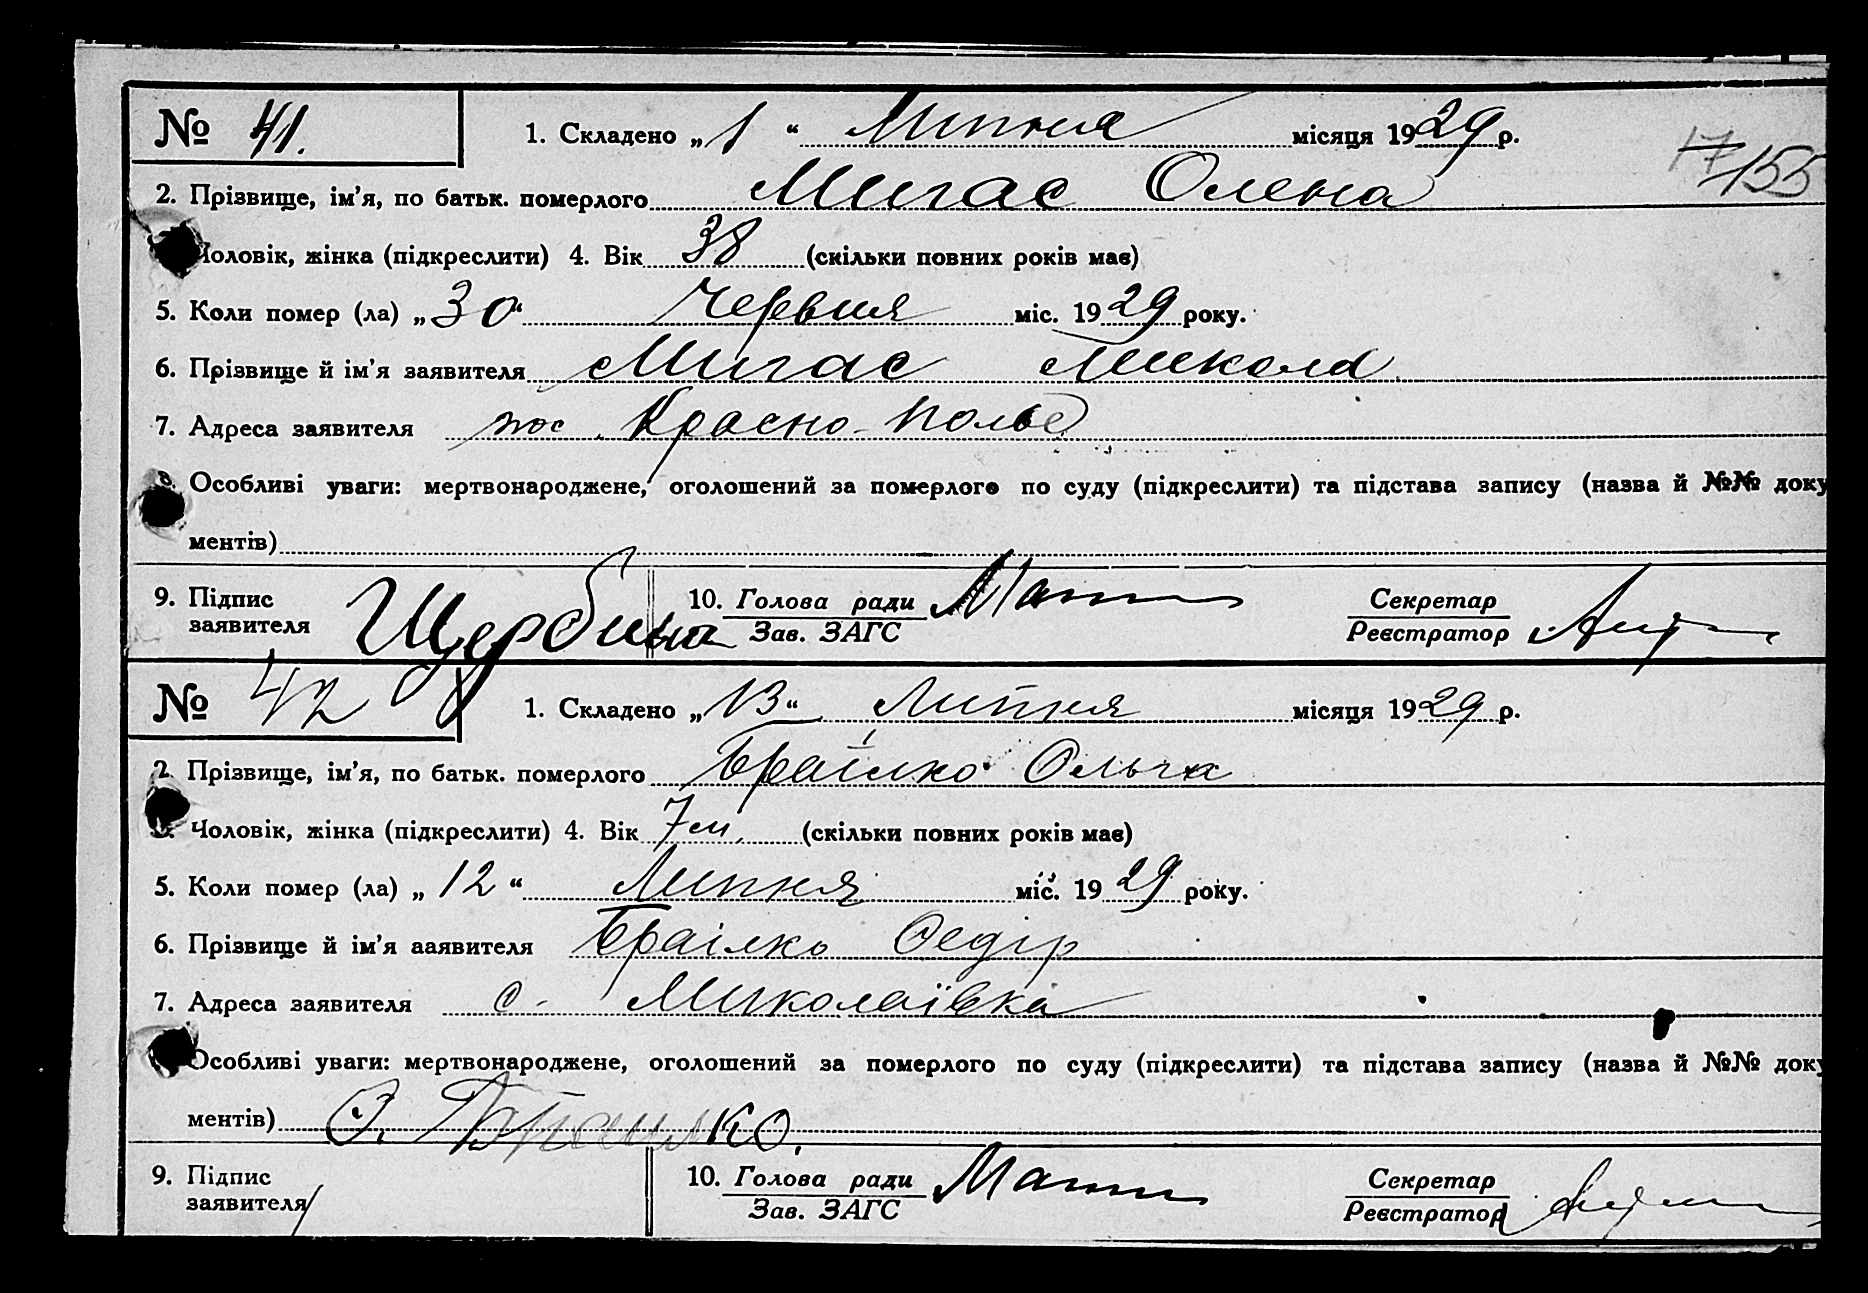 № 41. 1. Складено „1“ Липня місяця 1929 р.
17 155
2. Прізвище, ім'я, по батьк. померлого Мигас Олена
Чоловік, жінка (підкреслити) 4. Вік 38 (скільки повних років має)
5. Коли помер (ла) „30“ Червня міс. 1929 року.
6. Прізвище й ім'я заявителя Мигас Микола
7. Адреса заявителя пос. Красно-Полье
8. Особливі уваги: мертвонароджене, оголошений за померлого по суду (підкреслити) та підстава запису (назва й №№ доку
ментів)
9. Підпис заявителя Щербина 10. Голова ради Зав. ЗАГС Секретар Реєстратор
№ 42 1. Складено „13“ Липня місяця 1929 р.
2. Прізвище, ім'я, по батьк. померлого Браілко Ольга
3. Чоловік, жінка (підкреслити) 4. Вік 7 м. (скільки повних років має)
5. Коли помер (ла) „12“ Липня міс. 1929 року.
6. Прізвище й ім'я ааявителя Браілко Федір
7. Адреса заявителя с. Миколаївка
Особливі уваги: мертвонароджене, оголошений за померлого по суду (підкреслити) та підстава запису (назва й №№ доку
ментів)
9. Підпис заявителя 10. Голова ради Зав. ЗАГС Секретар Реєстратор